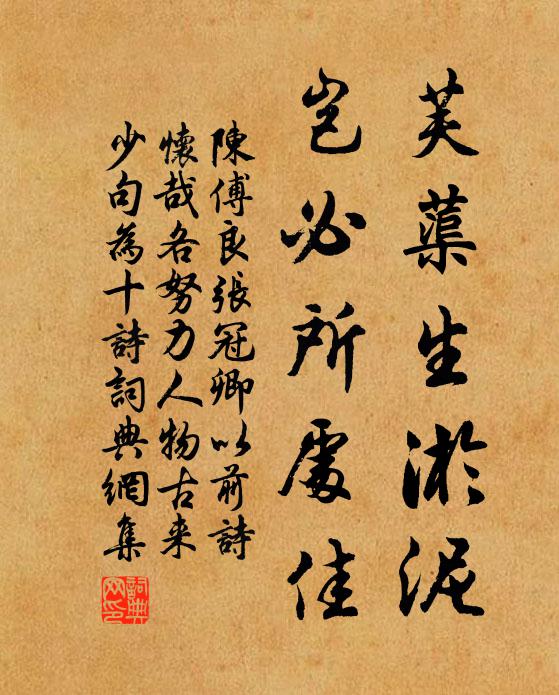 芙蕖生淤泥
岂必所處佳
陳傅良張冠卿以前詩
懷哉各努力人物古来
少句為十詩詞典網集
詞典网印